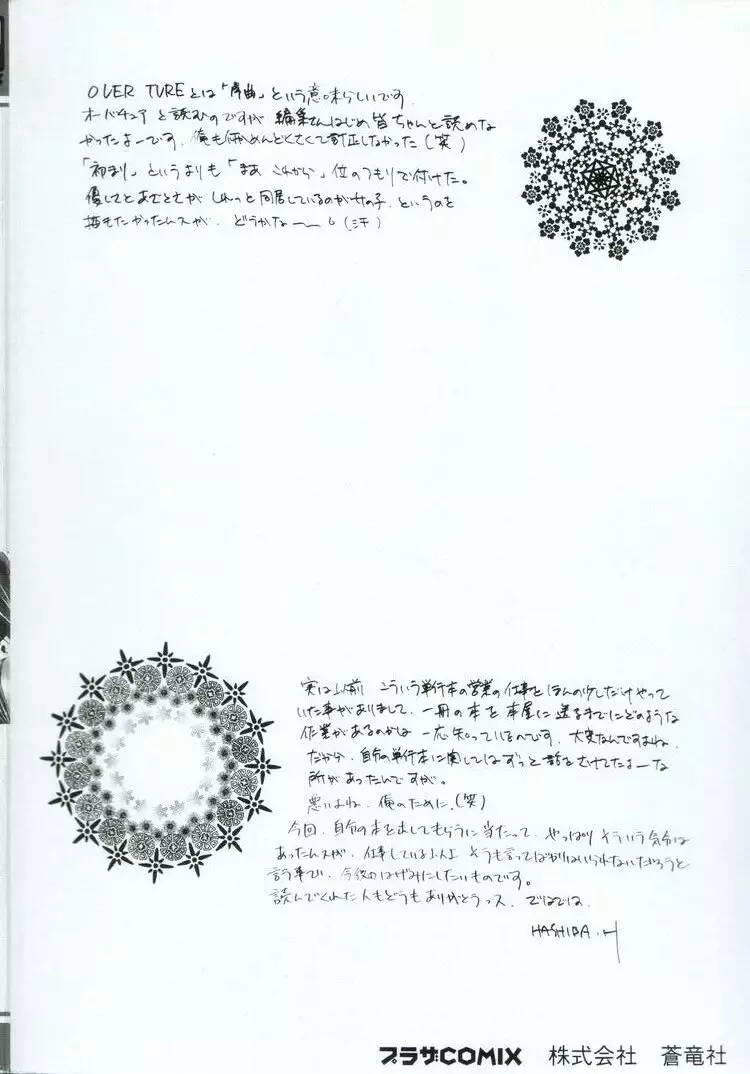 OVER TUREとは「序曲」という意味らしいです
オーバチュアと読むのですが 編集さんはじめ皆ちゃんと読めな
かったよーです。俺も何かめんどくさくて訂正しなかった(笑)
「初まり」というよりも「まあ これから」位のつもりで付けた。
しれっと同居しているのが女の子、というのを
描きたかったんスが、どうかなー(汗)
実は以前 こういう単行本の営業の仕事をほんの少しだけやって
いた事がありまして、一冊の本を本屋に送るまでにどのような
作業があるのかは 一応知っているのです。大変なんですよね。
だから、自分の単行本に関してはずっと話をさけてたよーな
所があったんですが。
悪いよね、俺のために。(笑)
今回、自分の本を出してもらうに当たって、やっぱりそういう気分は
あったんスが、仕事している以上 そうも言ってばかりはいられないだろうと
言う事で、今後のはげみにしたいものです。
読んでくれた人もどうもありがとうっス。ではでは。
HASHIBA.H
プラザCOMIX 株式会社 蒼竜社